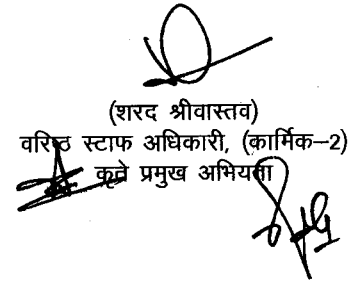 (शरद श्रीवास्तव)
वरिष्ठ स्टाफ अधिकारी, (कार्मिक–2)
कृते प्रमुख अभियंता